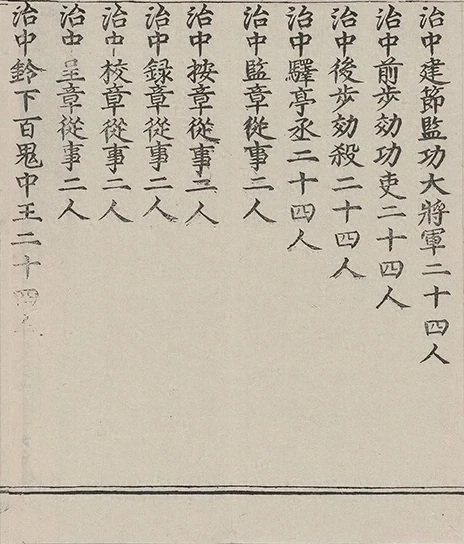 治中建節監功大將軍二十四人
治中前步効功吏二十四人
治中後步効殺二十四人
治中驛亭丞二十四人
治中監章從事二人
治中按章從事二人
治中録章從事二人
治中校章從事二人
治中呈章從事二人
治中鈴下百鬼中王二十四人